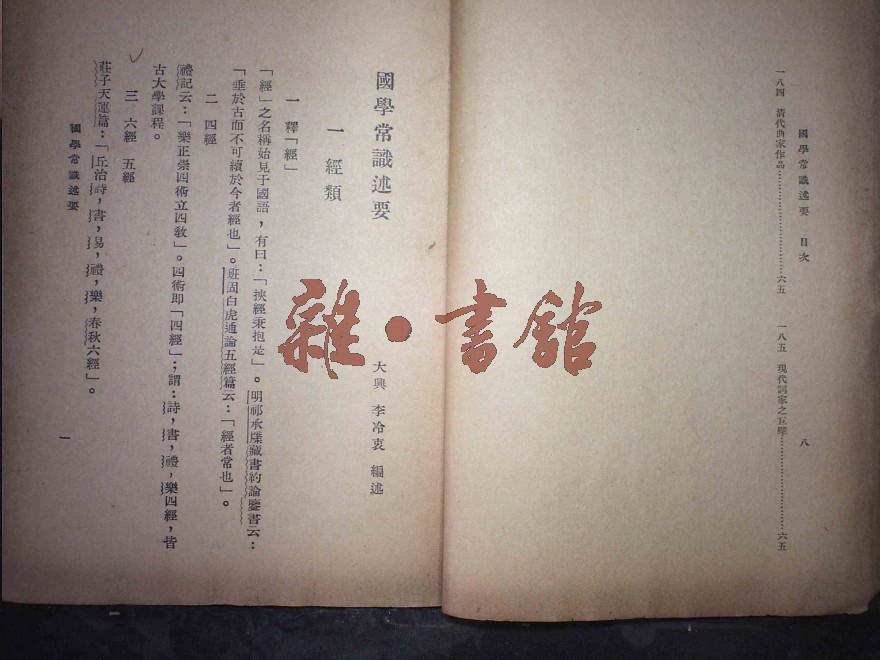 國學常識述要 目次 八
一八四 清代曲家作品……………………六五 一八五 現代詞家之巨擘……………………六五
國學常識述要
大興 李冷衷 編述
一 經類
一 釋「經」
「經」之名稱始見于國語,有曰:「挾經秉枹是」。明祁承㸁藏書約論鑒書云:
「垂於古而不可續於今者經也」。班固白虎通論五經篇云:「經者常也」。
二 四經
禮記云:「樂正崇四術立四教」。四術即「四經」;謂:詩,書,禮,樂四經,皆
古大學課程。
三 六經 五經
莊子天運篇:「丘治詩,書,易,禮,樂,春秋六經」。
國學常識述要 一
雜·書館